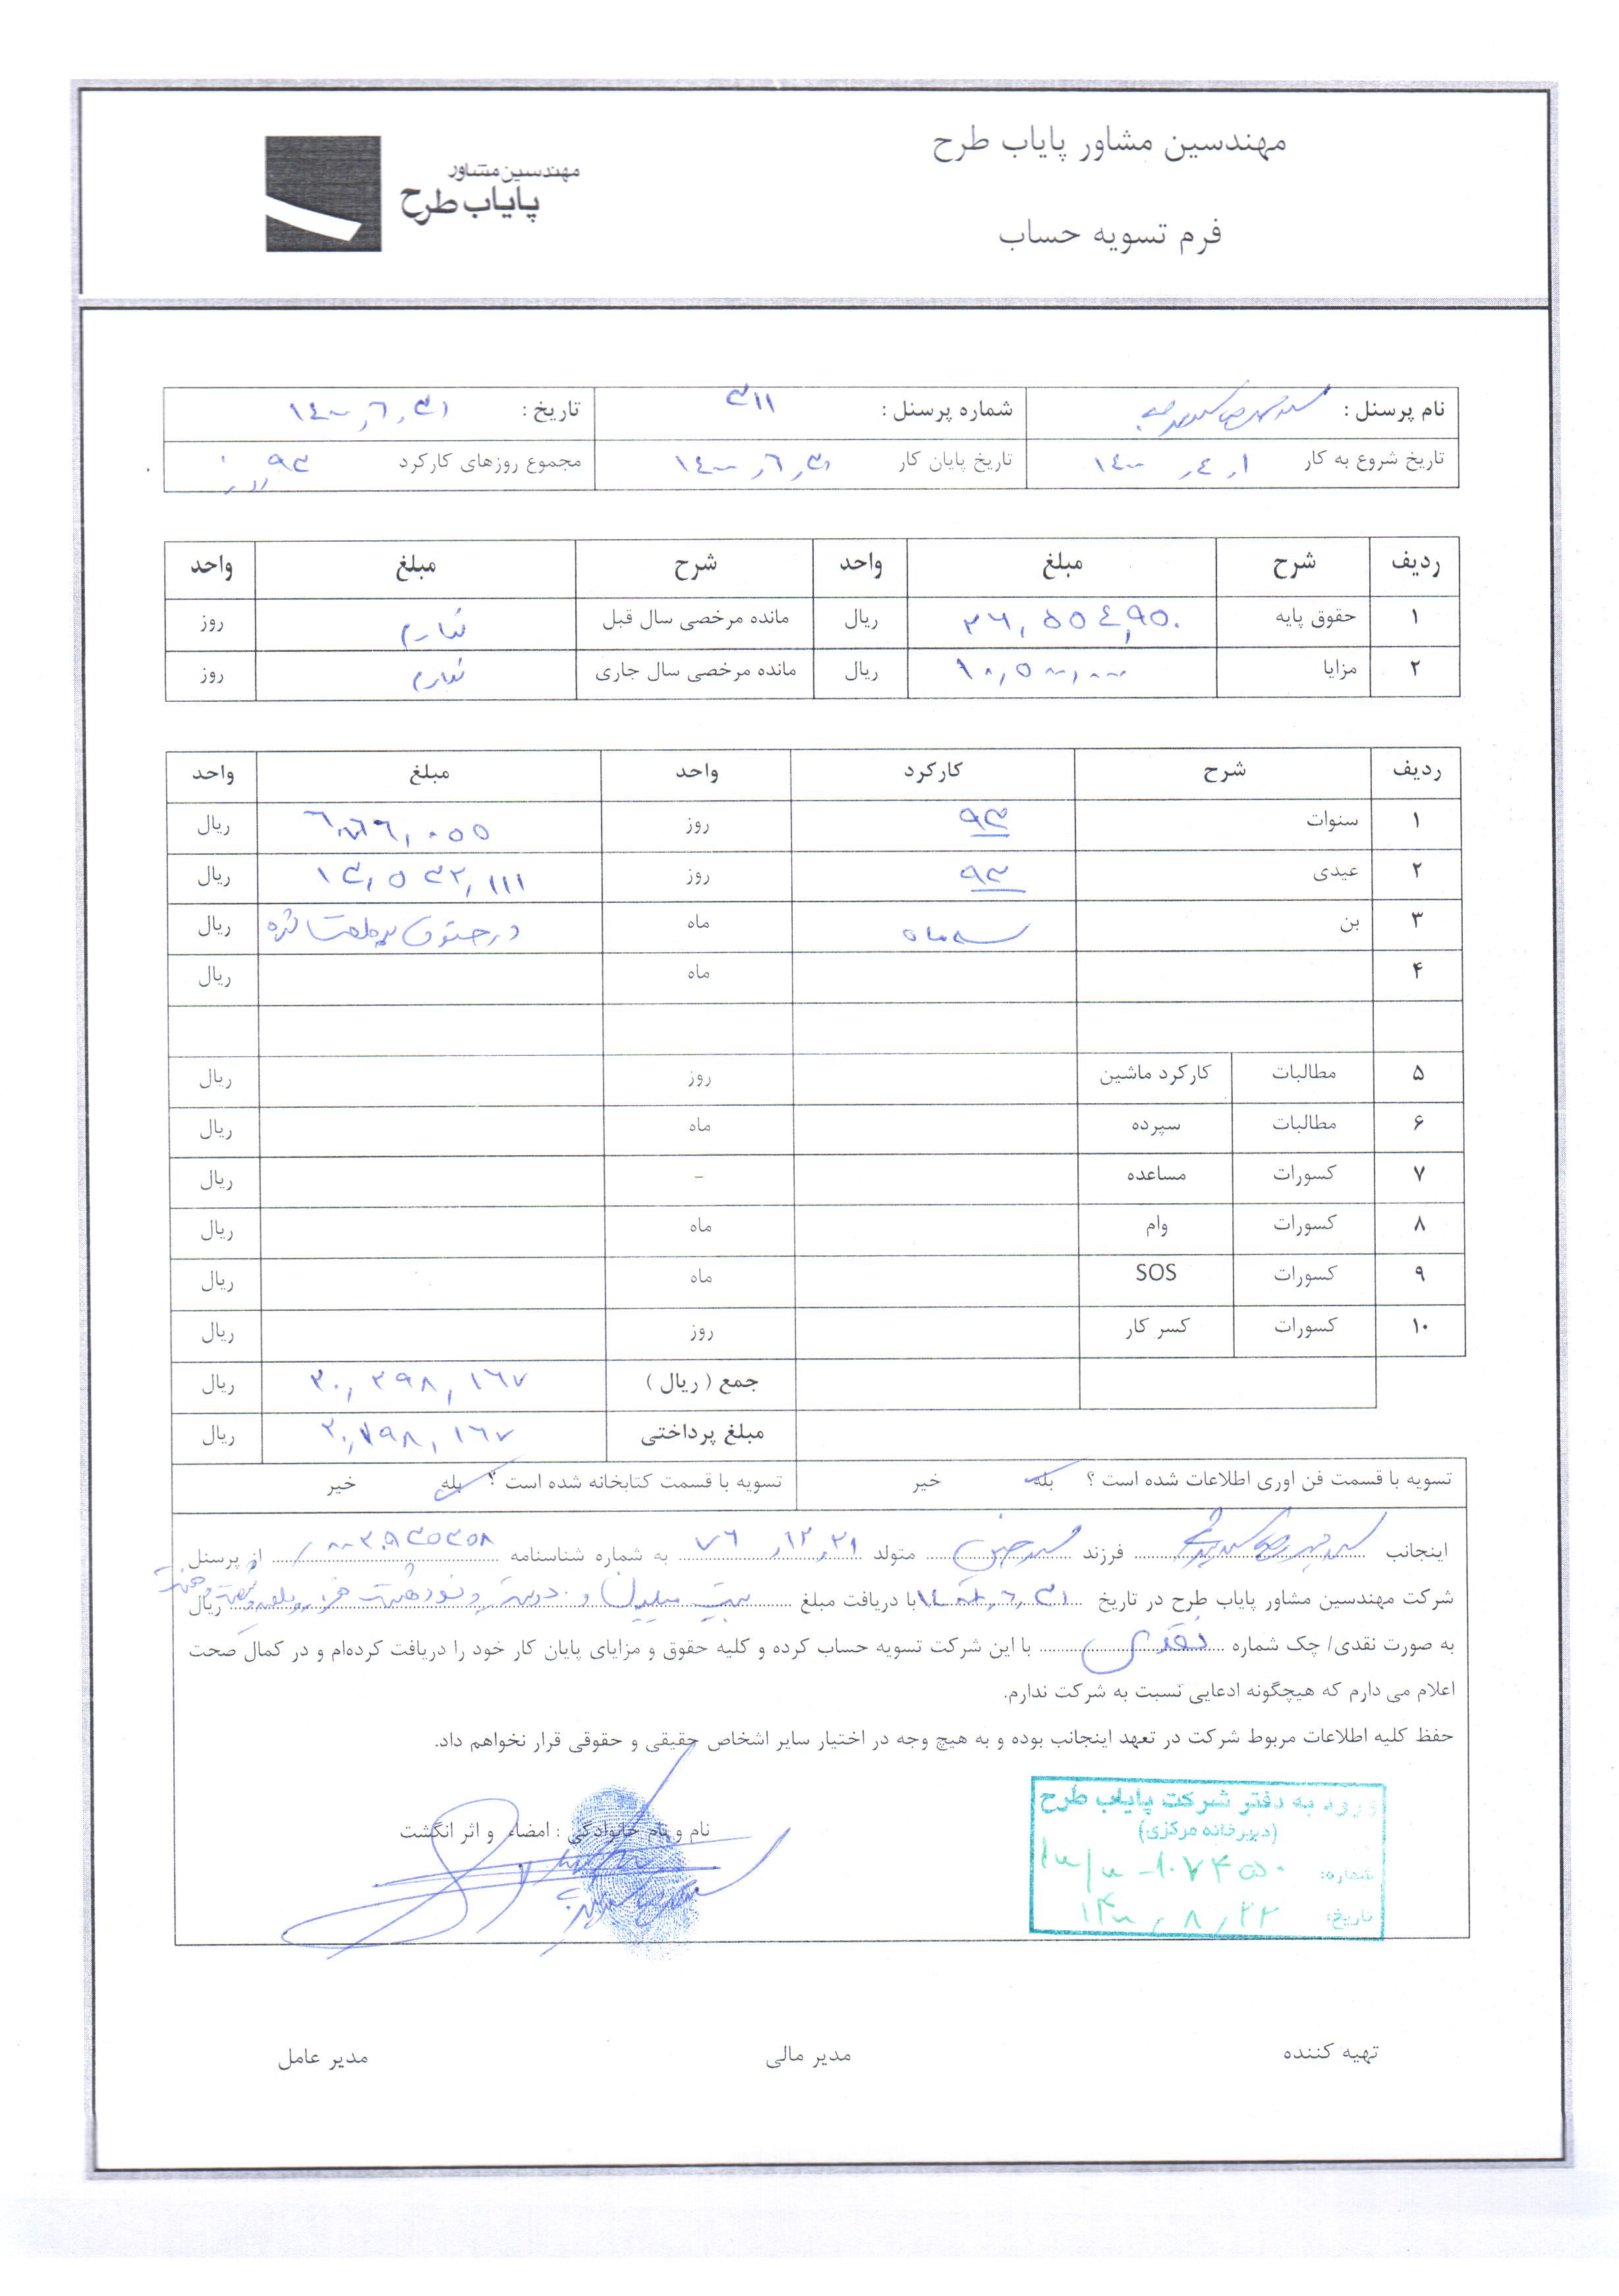 مهندسین مشاور پایاب طرح
مهندسین مشاور
پایاب طرح
فرم تسویه حساب
نام پرسنل : شماره پرسنل : ۳۱۱ تاریخ : ۱۴۰۰,۶,۳۱
تاریخ شروع به کار ۱۴۰۰,۴,۱ تاریخ پایان کار ۱۴۰۰,۶,۳۱ مجموع روزهای کارکرد ۹۳ روز
ردیف شرح مبلغ واحد شرح مبلغ واحد
۱ حقوق پایه ۲۶,۵۵۴,۹۵۰ ریال مانده مرخصی سال قبل ندارم روز
۲ مزایا ۱۰,۵۰۰,۰۰۰ ریال مانده مرخصی سال جاری ندارم روز
ردیف شرح کارکرد واحد مبلغ واحد
۱ سنوات ۹۳ روز ۶,۷۶۶,۰۵۵ ریال
۲ عیدی ۹۳ روز ۱۳,۵۳۲,۱۱۱ ریال
۳ بن سه ماه ماه در حقوق پرداخت شده ریال
۴ ماه ریال
۵ مطالبات کارکرد ماشین روز ریال
۶ مطالبات سپرده ماه ریال
۷ کسورات مساعده - ریال
۸ کسورات وام ماه ریال
۹ کسورات SOS ماه ریال
۱۰ کسورات کسر کار روز ریال
جمع ( ریال ) ۲۰,۲۹۸,۱۶۷ ریال
مبلغ پرداختی ۲۰,۲۹۸,۱۶۷ ریال
تسویه با قسمت فن اوری اطلاعات شده است ؟ بله خیر تسویه با قسمت کتابخانه شده است ؟ بله خیر
اینجانب فرزند متولد ۷۶,۱۲,۲۱ به شماره شناسنامه از پرسنل
شرکت مهندسین مشاور پایاب طرح در تاریخ ۱۴۰۰,۶,۳۱ با دریافت مبلغ بیست میلیون و دویست و نود و هشت هزار و یکصد و شصت و هفت ریال
به صورت نقدی/ چک شماره نقدی با این شرکت تسویه حساب کرده و کلیه حقوق و مزایای پایان کار خود را دریافت کرده‌ام و در کمال صحت
اعلام می دارم که هیچگونه ادعایی نسبت به شرکت ندارم.
حفظ کلیه اطلاعات مربوط شرکت در تعهد اینجانب بوده و به هیچ وجه در اختیار سایر اشخاص حقیقی و حقوقی قرار نخواهم داد.
ورود به دفتر شرکت پایاب طرح
(دبیرخانه مرکزی)
شماره:
تاریخ: ۱۴۰۰,۸,۲۲
نام و نام خانوادگی : امضاء و اثر انگشت
تهیه کننده مدیر مالی مدیر عامل